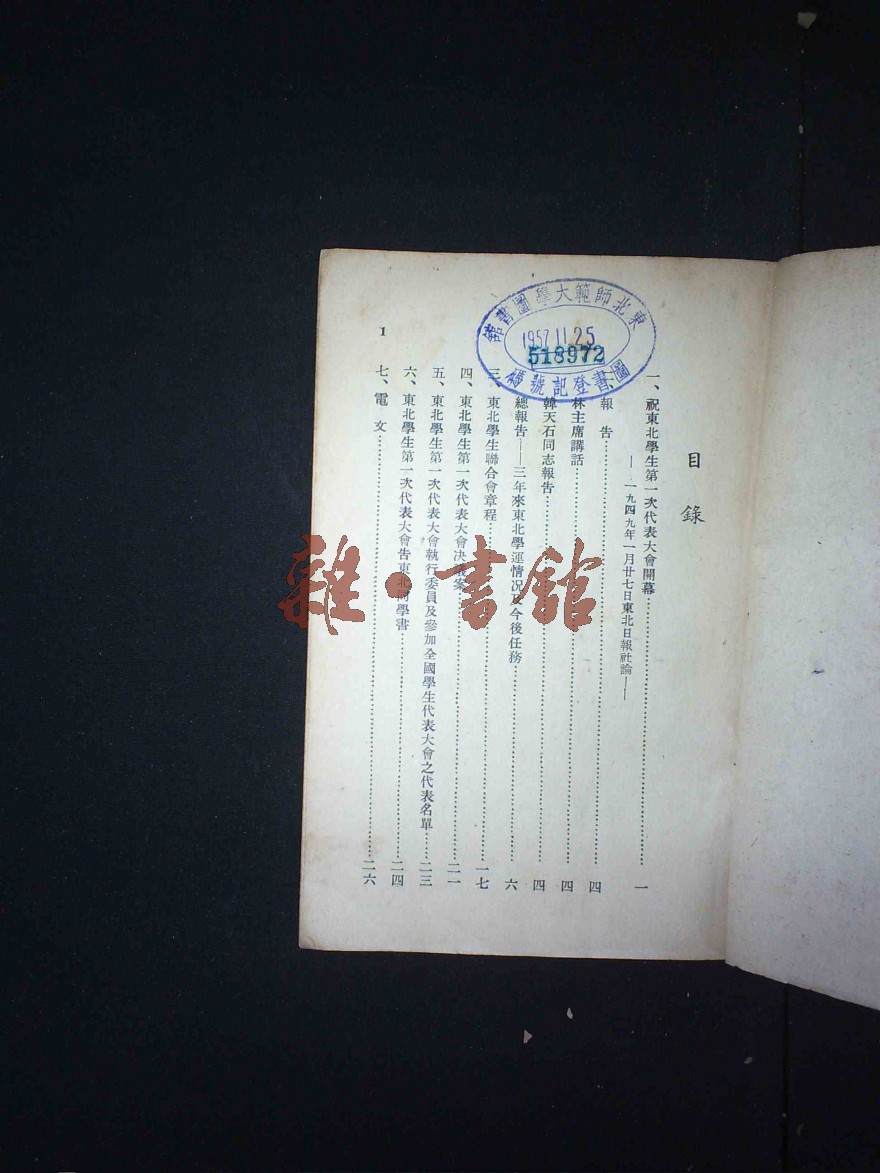 目錄
一、祝東北學生第一次代表大會開幕……一
——一九四九年一月廿七日東北日報社論——
報告……四
林主席講話……四
韓天石同志報告……四
總報告——三年來東北學運情況及今後任務……六
三、東北學生聯合會章程……一七
四、東北學生第一次代表大會决議案……二一
五、東北學生第一次代表大會執行委員及參加全國學生代表大會之代表名單……二三
六、東北學生第一次代表大會告東北同學書……二四
七、電文……二六
1
東北師範大學圖書館
1957 11 25
518972
圖書登記號碼
雜·書館